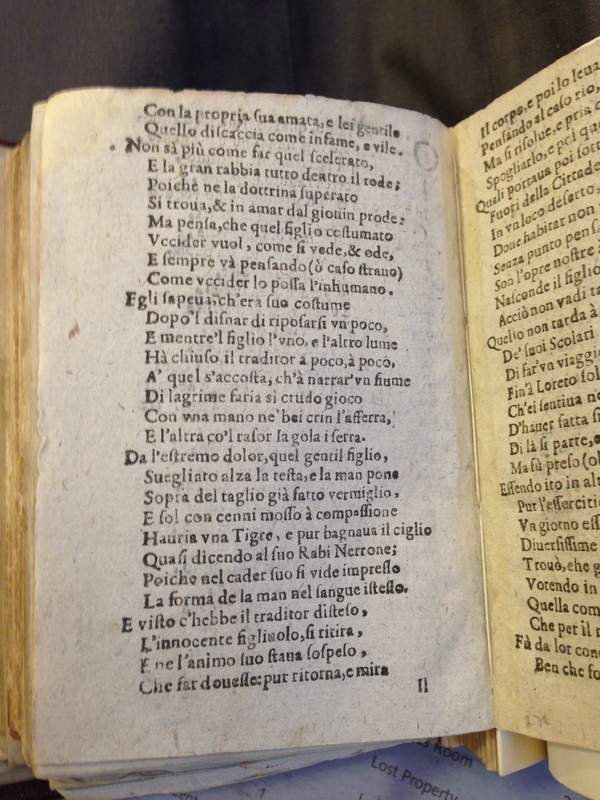 Con la propria sua amata, e lei gentile
Quello discaccia come infame, e vile.
Non sà più come far quel scelerato,
E la gran rabbia tutto dentro il rode;
Poiche ne la dottrina superato
Si troua,& in amar dal giouin prode:
Ma pensa,che quel figlio costumato
Vccider vuol, come si vede,& ode,
E sempre và pensando(ò caso strano)
Come vccider lo possa l'inhumano.
Egli sapeua,ch'era suo costume
Dopo'l disnar di riposarsi vn poco,
E mentre'l figlio l'vno, e l'altro lume
Hà chiuso, il traditor a poco,à poco,
A' quel s'accosta, ch'à narrar'vn fiume
Di lagrime faria sì crudo gioco
Con vna mano ne' bei crin l'afferra,
E l'altra co'l rasor la gola i serra.
Da l'estremo dolor,quel gentil figlio,
Suegliato alza la testa,e la man pone
Sopra del taglio già fatto vermiglio,
E sol con cenni mosso à compassione
Hauria vna Tigre, e pur bagnaua il ciglio
Quasi dicendo al suo Rabi Nerrone;
Poiche nel cader suo si vide impresso
La forma de la man nel sangue istesso.
E visto c'hebbe il traditor disteso,
L'innocente figliuolo,si ritira,
E ne l'animo suo staua sospeso,
Che far douesse: pur ritorna,e mira
Il
Il corpo,e poi lo leua
Pensando al caso rio,
Ma si risolue,e pria
Spogliarlo,e poi
Quali portaua poi sott
Fuori della Cittade
In vn loco deserto,
Doue habitar non
Senza punto pens
Son l'opre nostre
Nasconde il figlio
Acciò non vadi
Quello non tarda à
De' suoi Scolari
Di far'vn viaggi
Fin'à Loreto sol
Ch'ei sentiua ne
D'hauer fatta
Di là si parte,
Ma fù preso
Essendo ito in al
Pur l'essercit
Vn giorno ess
Diuersissime
Trouò,che
Votendo in
Quella com
Che per il
Fù da lor con
Ben che fo
Room
Lost Property